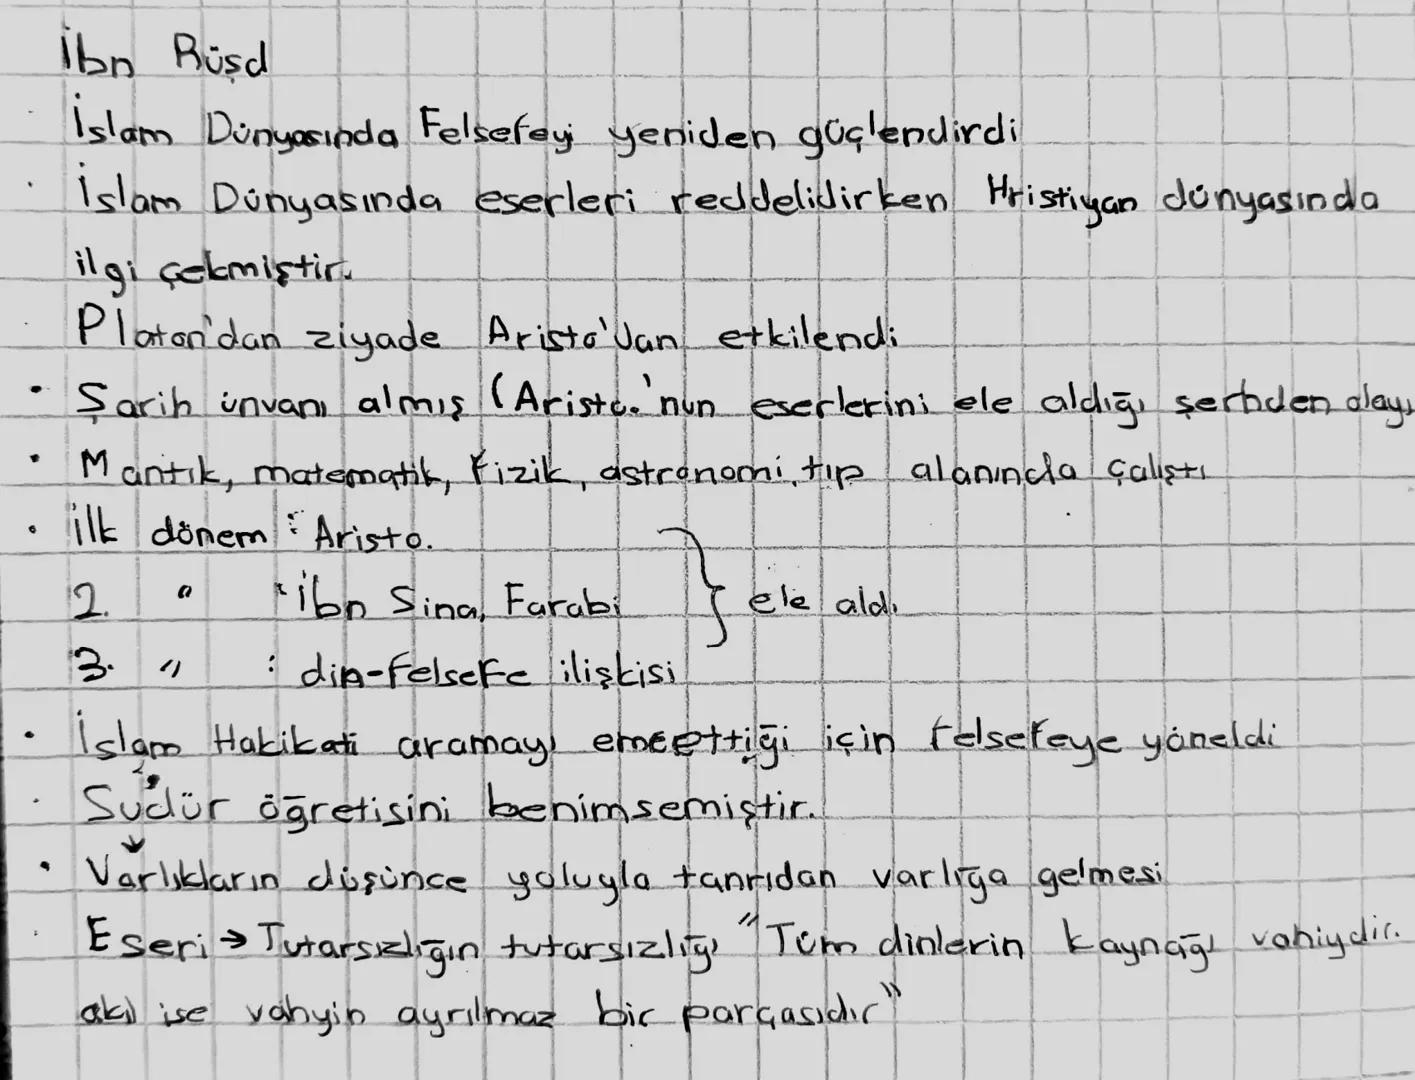 İbn Rüşd
· İslam Dünyasında Felsefeyi yeniden güçlendirdi
· İslam Dünyasında eserleri reddelidirken Hristiyan dünyasında
ilgi çekmiştir.
· Platon'dan ziyade Aristo'dan etkilendi
· Şarih ünvanı almış (Aristo.'nun eserlerini ele aldığı şerhden dolayı
· Mantık, matematik, fizik, astronomi, tıp alanında çalıştı
· ilk dönem : Aristo.
2. " : İbn Sina, Farabi } ele aldı
3. " : din-felsefe ilişkisi
· İslam Hakikati aramayı emrettiği için felsefeye yöneldi
· Sudür öğretisini benimsemiştir.
· Varlıkların düşünce yoluyla tanrıdan varlığa gelmesi
· Eseri → Tutarsızlığın tutarsızlığı "Tüm dinlerin kaynağı vahiydir.
akıl ise vahyin ayrılmaz bir parçasıdır"